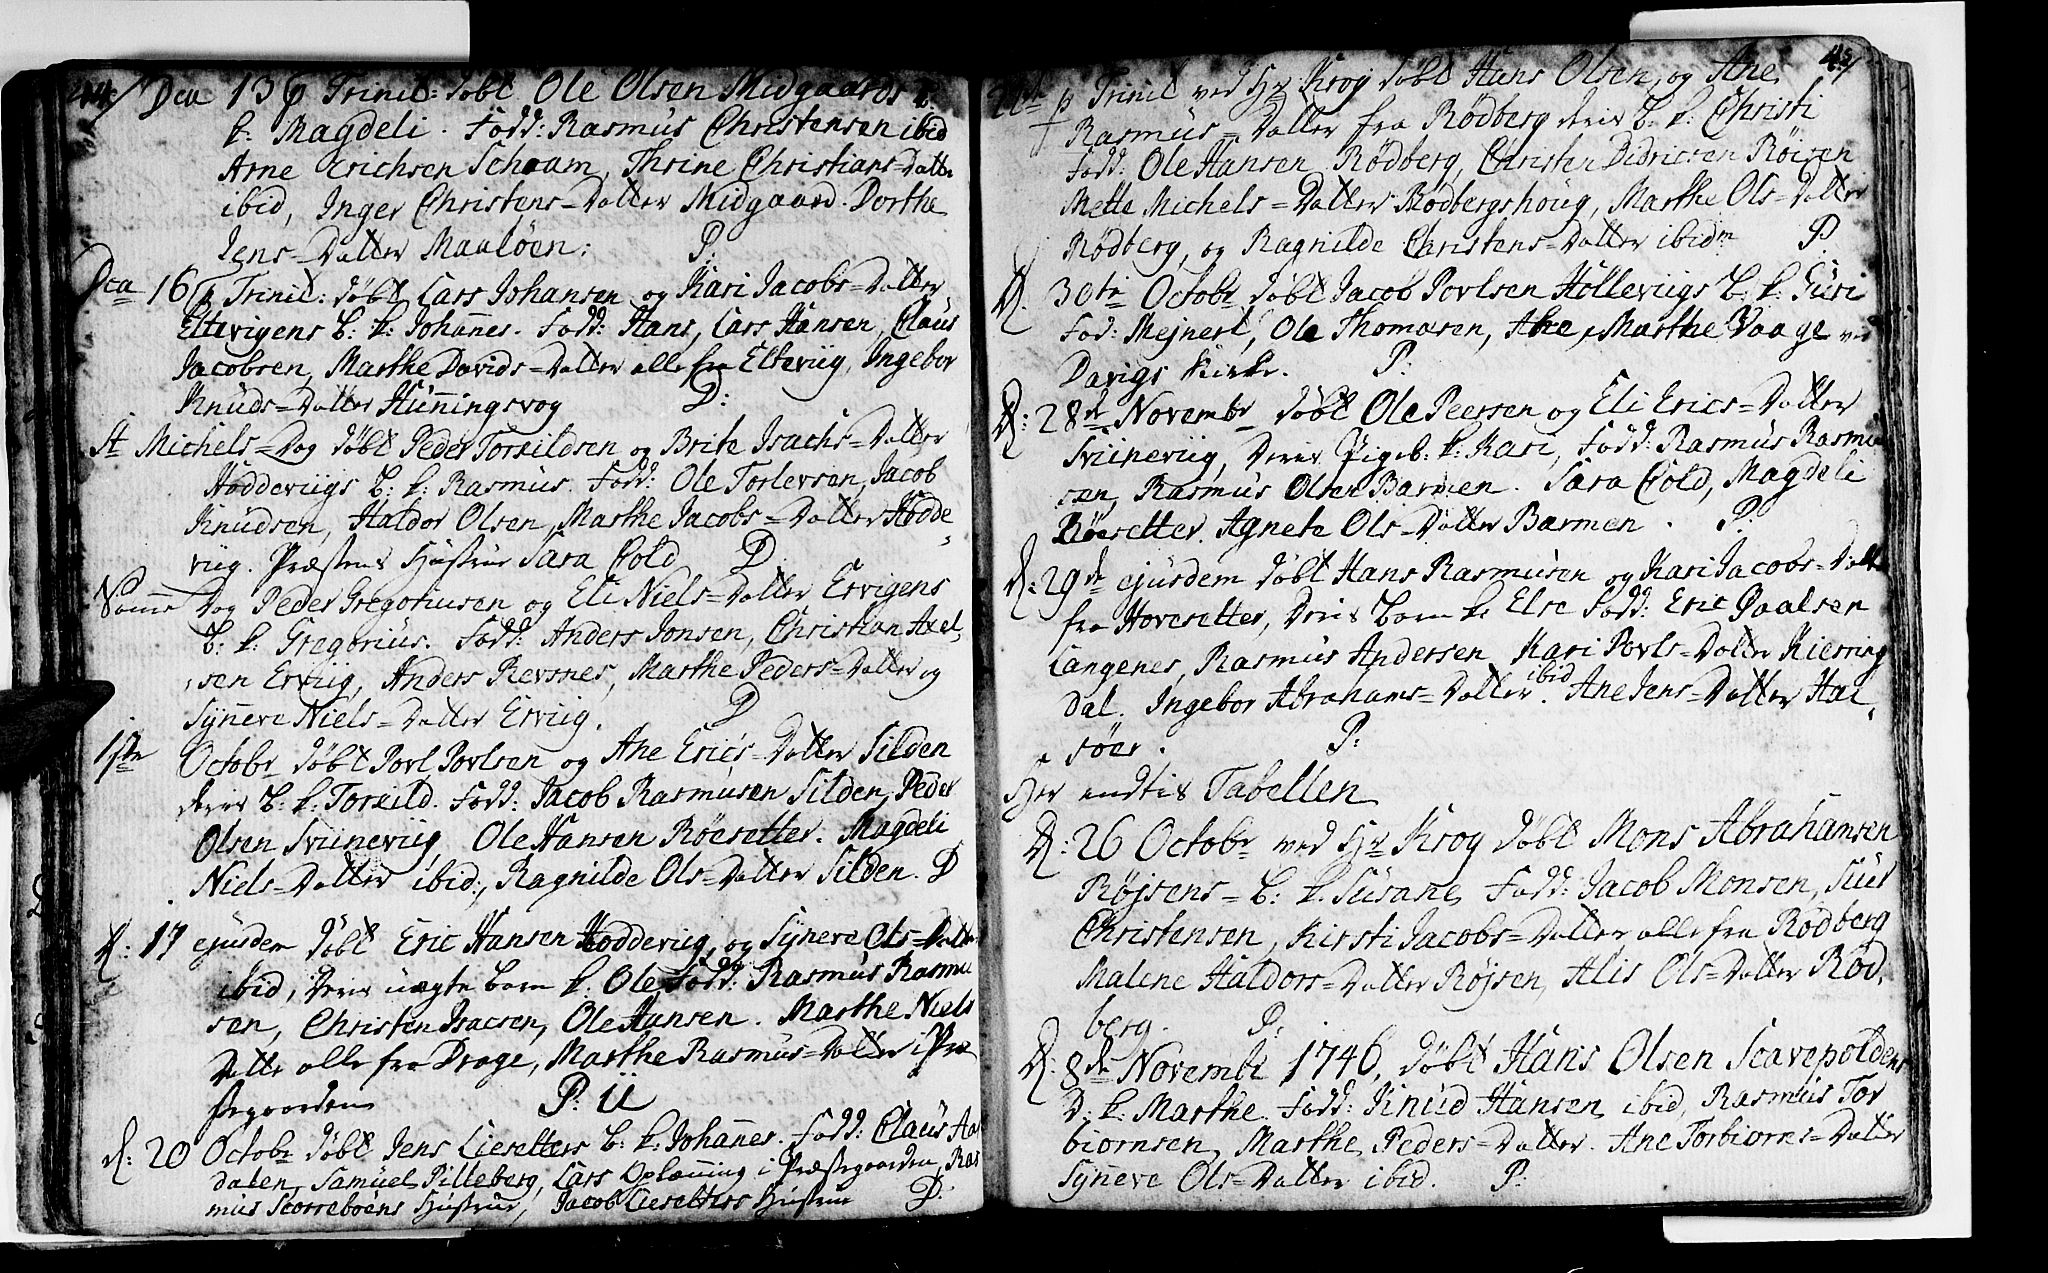 44/ Dca 13 p Trinit: döbt Ole Olsen Midgaards B:
k: Magdeli. Fadd: Rasmus Christensen ibid
Arne Erichsen Schaam, Thrine Christians=Datter
ibid, Inger Christens=Datter Midgaard. Dorthe
Jens=Datter Maalöen: P:
Dca 16 p Trinit: döbt Lars Johansen og Kari Jacobs=Datter
Eltevigens B: k: Johannes. Fadd: Hans, Lars Hansen, Claus
Jacobsen, Marthe Davids=Datter alle fra Elteviig, Ingebor
Knuds=Datter Hunningsvog D:
St Michels=Dag döbt Peder Torkildsen og Brite Isachs=Datter
Hoddeviigs B: k: Rasmus. Fadd: Ole Torlevsen, Jacob
Knudsen, Haldor Olsen, Marthe Jacobs=Datter Hodde
viig. Præstens Hustrue Sara Cold D
Samme Dag Peder Gregoriusen og Eli Niels=Datter Ervigens
B: k: Gregorius. Fadd: Anders Jonsen, Christian Axel,
sen Erviig, Anders Revsnes, Marthe Peders=Datter og
Synneve Niels=Datter Erviig. D
17de Octobr döbt Povl Povlsen og Ane Erics=Datter Silden
deres B: k: Torkild. Fadd: Jacob Rasmusen Silden, Peder
Olsen Sviineviig, Ole Hansen Röesetter. Magdeli
Niels=Datter ibid, Ragnilde Ols=Datter Silden. D
d: 17 ejusdem döbt Eric Hansen Hoddeviig og Synneve Ols=Datter
ibid, deres uægte barn k: Ole Fadd: Rasmus Rasmu
sen, Christen Isacsen, Ole Hansen. Marthe Niels
Datter alle fra Drage, Marthe Rasmus=Datter i Præ
stegaarden P: U
d: 20 Octobr döbt Jens Liesetters B: k: Johannes. Fadd: Claus Aar
dalen, Samuel Pilleberg, Lars Oplænning i Præstegaarden, Ras
mus Skorreböens Hustrue, Jacob Liesetters Hustrue D:
45/
p Trinit ved Hr Krog döbt Hans Olsen og Ane
Rasmus=Datter fra Rödberg deres B: k: Christi
Fadd: Ole Hansen Rödberg, Christen Didricsen Röisen
Mette Michels=Datter Rödbergshoug, Marthe Ols=Datter
Rödberg, og Ragnilde Christens=Datter ibidm P
d. 30te Octobr döbt Jacob Povlsen Holleviigs B: k: Guri
Fad: Mejnert, Ole Thomasen, Ane, Marthe Vaage ved
Davigs Kirke. P:
d: 28de Novembr döbt Ole Peersen og Eli Erics=Datter
Sviineviig, deres Pigeb: k: Kari, Fadd: Rasmus Rasmu
sen, Rasmus Olsen Barmen. Sara Cold, Magdeli
Röesetter. Agnete Ols=Datter Barmen. P:
d: 29de ejusdem döbt Hans Rasmusen og Kari Jacobs=Datter
fra Hovesetter, deres Barn k: Else Fadd: Eric Paalsen
Langenes, Rasmus Andersen Kari Povls=Datter Kierring
dal. Ingebor Abrahams=Datter ibid. Ane Jens=Datter Hal,
söer. P:
Her endtis Tabellen
d: 26 Octobr ved Hr Krog döbt Mons Abrahamsen
Röjsens=B: k: Susane, Fadd: Jacob Monsen, Siur
Christensen, Kirsti Jacobs=Datter alle fra Rödberg
Malene Haldors=Datter Röjsen, Alis Ols=Datter Röd,
berg. P:
d: 8de Novembr 1746, döbt Hans Olsen Scavepoldens
D. k: Marthe. Fadd: Knud Hansen ibid, Rasmus Tor
biornsen, Marthe Peders=Datter. Ane Torbiorns=Datter
Synneve Ols=Datter ibid. P: